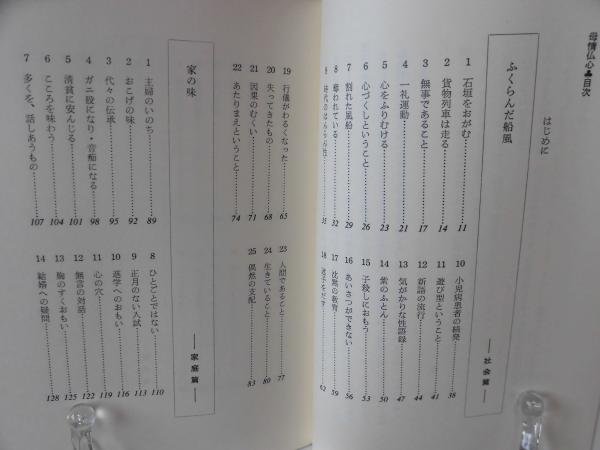 母情仏心♣目次
はじめに
ふくらんだ船風
──社会篇──
1 石垣をおがむ……11
2 貨物列車は走る……14
3 無事であること……17
4 一礼運動……21
5 心をふりむける……23
6 心づくしということ……26
7 割れた風船……29
8 奪われている……32
9 ……35
10 小児病患者の続発……38
11 遊び型ということ……41
12 新語の流行……44
13 気がかりな性語録……47
14 紫のふとん……50
15 子殺しにおもう……53
16 あいさつができない……56
17 沈黙の教育……59
18 ……62
19 行儀がわるくなった……65
20 失ってきたもの……68
21 因果のむくい……71
22 あたりまえということ……74
23 人間であること……77
24 生きていること……80
25 偶然の支配……83
家の味
──家庭篇──
1 主婦のいのち……89
2 おこげの味……92
3 代々の伝承……95
4 ガニ股になり・音痴になる……98
5 清貧に安んじる……101
6 こころを味わう……104
7 多くを、話しあうもの……107
8 ひとごとではない……110
9 正月のない入試……113
10 進学へのおもい……116
11 心の穴……119
12 無言の対話……122
13 胸のすくおもい……125
14 結婚への疑問……128